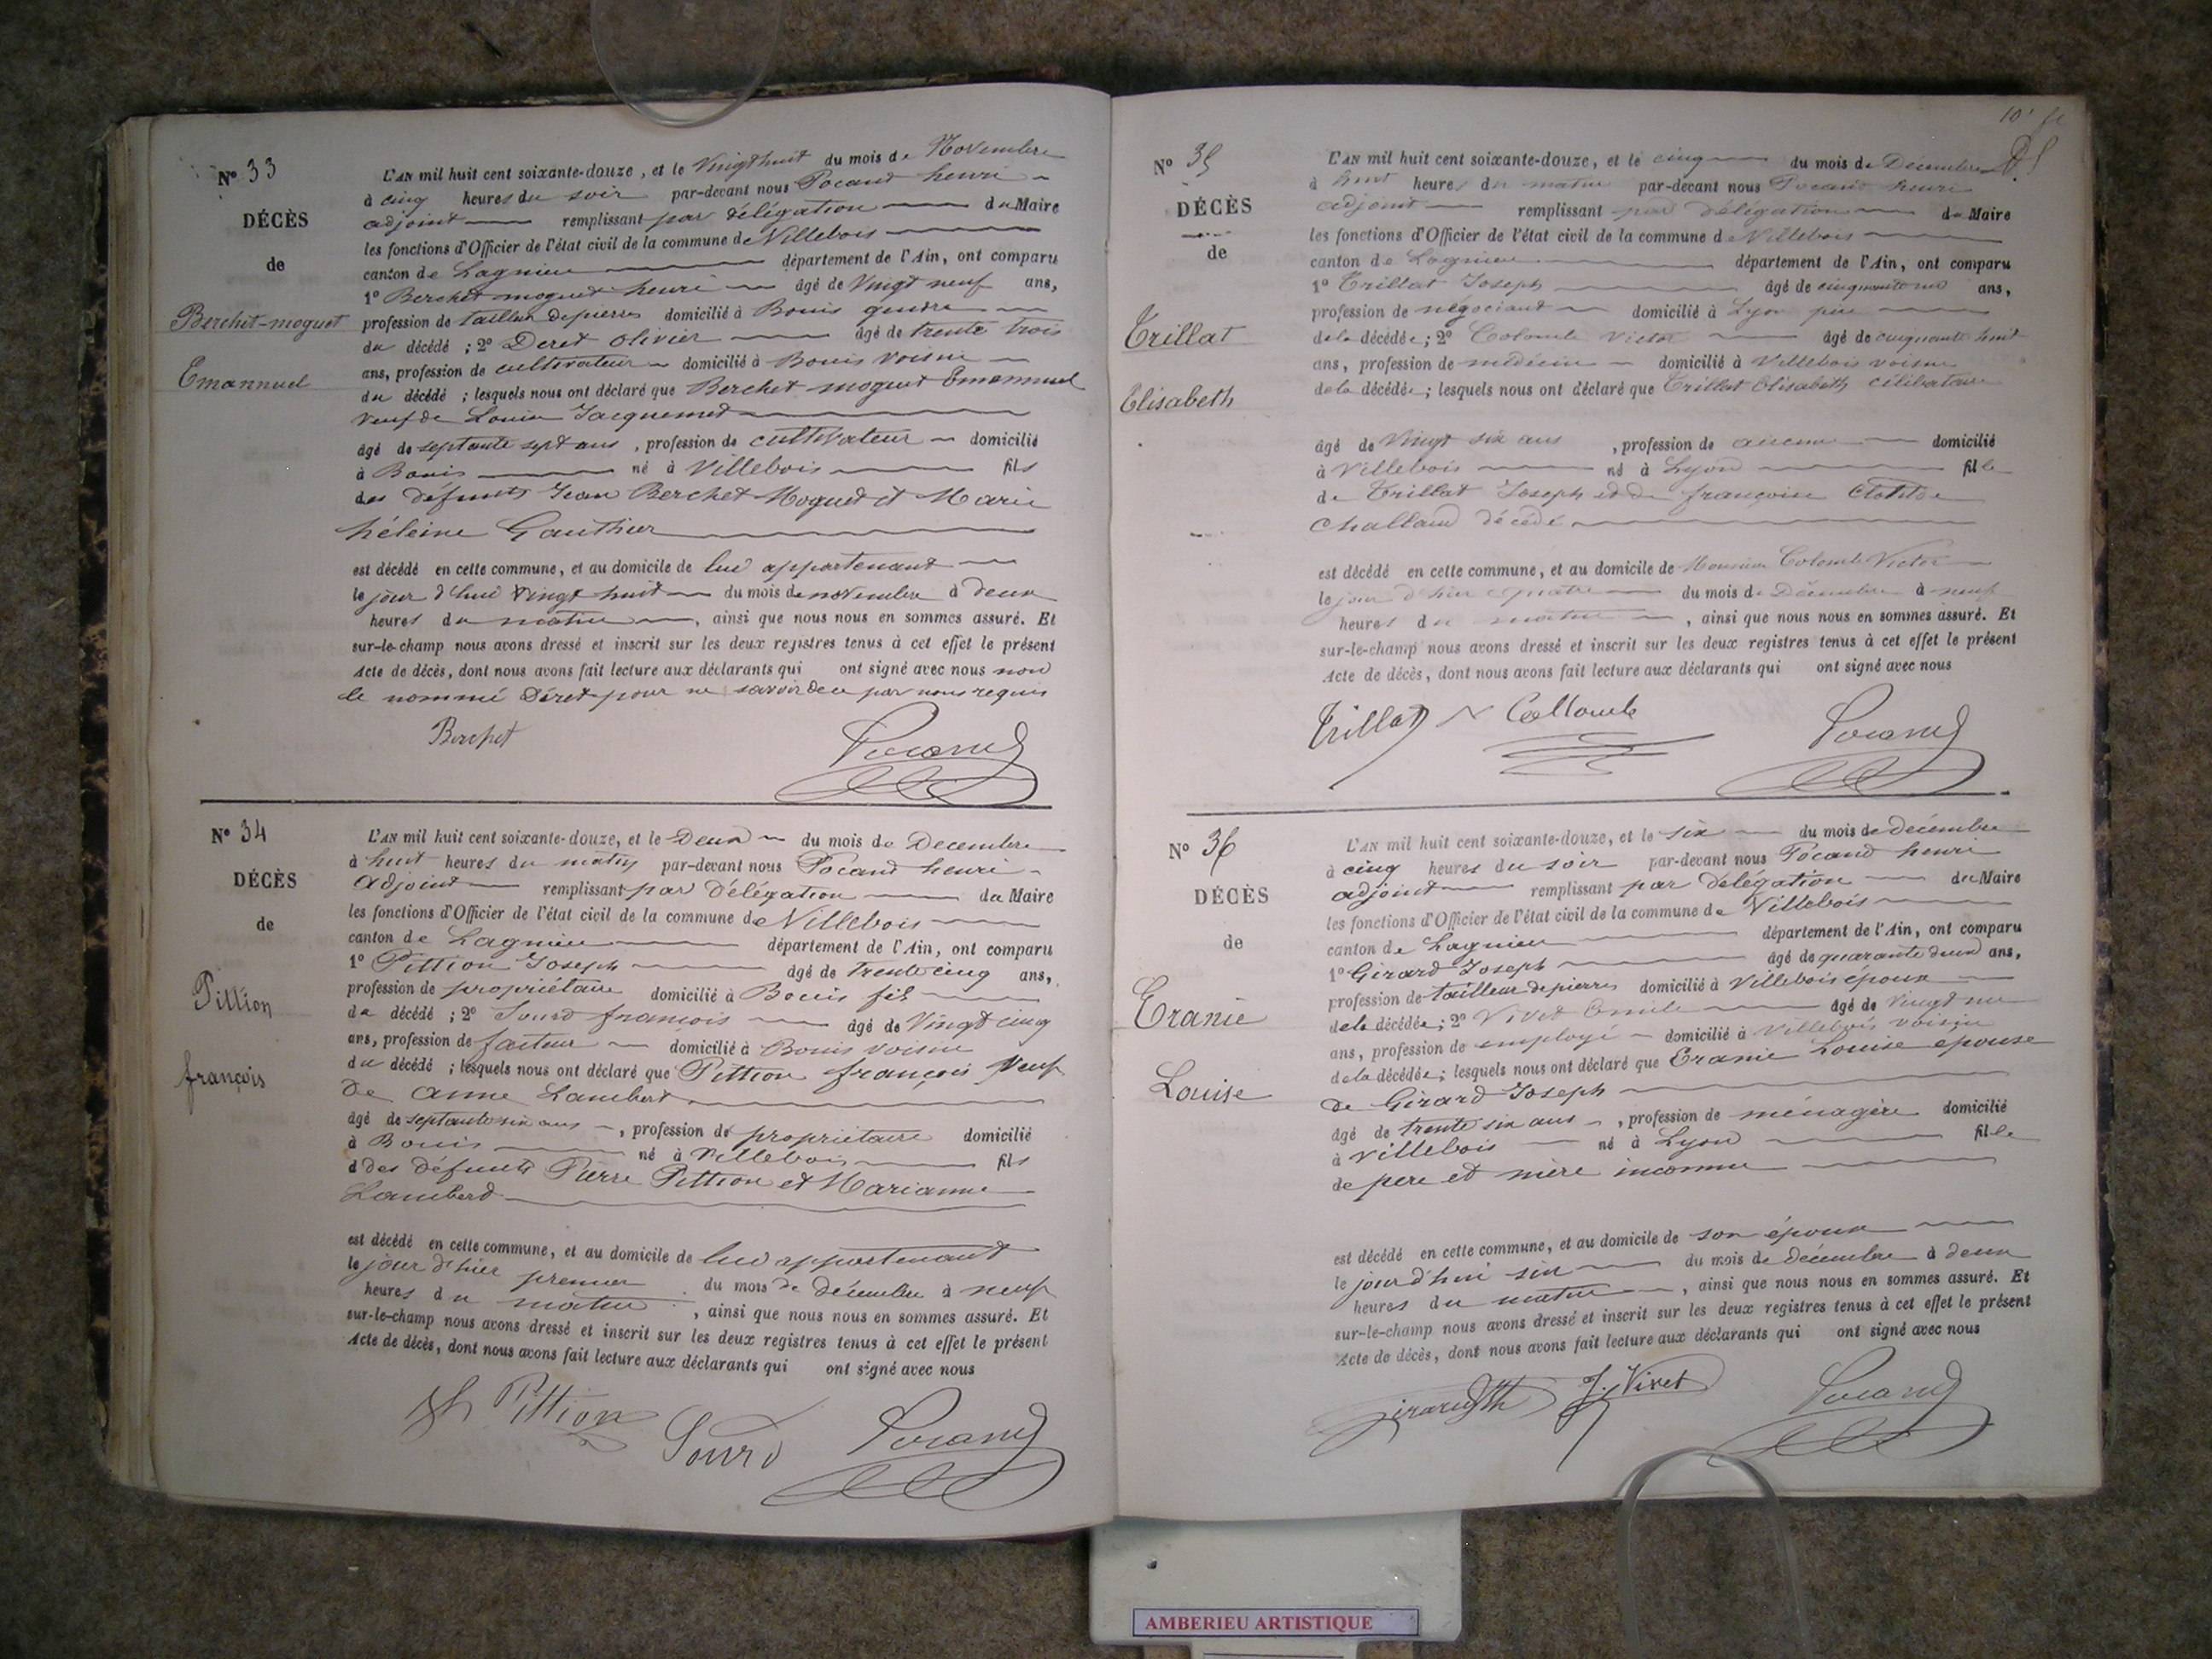 N° 33
DÉCÈS
de
Berchet-moguet
Emannuel
L'AN mil huit cent soixante-douze, et le Vingt huit du mois de Novembre
à cinq heures du soir par-devant nous Pocand henri
adjoint remplissant par délégation du Maire
les fonctions d'Officier de l'état civil de la commune de Villebois
canton de Lagnieu département de l'Ain, ont comparu
1° Berchet moguet henri âgé de Vingt neuf ans,
profession de tailleur de pierres domicilié à Bouis gendre
du décédé ; 2° Deret olivier âgé de trente trois
ans, profession de cultivateur domicilié à Bouis voisin
du décédé ; lesquels nous ont déclaré que Berchet moguet Emannuel
veuf de Louise Jacquemet
âgé de septante sept ans, profession de cultivateur domicilié
à Bouis né à Villebois fils
des défunts Jean Berchet Moguet et Marie
héleine Gauthier
est décédé en cette commune, et au domicile de lui appartenant
le jour d'hui vingt huit du mois de novembre à deux
heures du matin, ainsi que nous nous en sommes assuré. Et
sur-le-champ nous avons dressé et inscrit sur les deux registres tenus à cet effet le présent
Acte de décès, dont nous avons fait lecture aux déclarants qui ont signé avec nous non
le nommé Déret pour ne savoir de ce par nous requis
Berchet Pocand
N° 34
DÉCÈS
de
Pittion
françois
L'AN mil huit cent soixante-douze, et le Deux du mois de Decembre
à huit heures du matin par-devant nous Pocand henri
adjoint remplissant par délégation du Maire
les fonctions d'Officier de l'état civil de la commune de Villebois
canton de Lagnieu département de l'Ain, ont comparu
1° Pittion Joseph âgé de trente cinq ans,
profession de propriétaire domicilié à Bouis fils
du décédé ; 2° Sourd francois âgé de Vingt cinq
ans, profession de facteur domicilié à Bouis voisin
du décédé ; lesquels nous ont déclaré que Pittion françois Veuf
de Anne Lambert
âgé de septante six ans, profession de propriétaire domicilié
à Bouis né à Villebois fils
d des défunts Pierre Pittion et Marianne
Lamberd
est décédé en cette commune, et au domicile de lui appartenant
le jour d'hier premier du mois de décembre à neuf
heures du matin, ainsi que nous nous en sommes assuré. Et
sur-le-champ nous avons dressé et inscrit sur les deux registres tenus à cet effet le présent
Acte de décès, dont nous avons fait lecture aux déclarants qui ont signé avec nous
Pittion Sourd Pocand
N° 35
DÉCÈS
de
Trillat
Elisabeth
L'AN mil huit cent soixante-douze, et le cinq du mois de Decembre
à huit heures du matin par-devant nous Pocand henri
adjoint remplissant par délégation du Maire
les fonctions d'Officier de l'état civil de la commune de Villebois
canton de Lagnieu département de l'Ain, ont comparu
1° Trillat Joseph âgé de cinquante ans,
profession de négociant domicilié à Lyon père
de la décédée ; 2° Colomb Victor âgé de cinquante huit
ans, profession de médecin domicilié à Villebois voisin
de la décédée ; lesquels nous ont déclaré que Trillat Elisabeth célibataire
âgé de vingt six ans, profession de aucune domicilié
à Villebois né à Lyon fille
de Trillat Joseph et de françoise Clotilde
Challand décédé
est décédé en cette commune, et au domicile de Monsieur Colomb Victor
le jour d'hier quatre du mois de Décembre à neuf
heures du matin, ainsi que nous nous en sommes assuré. Et
sur-le-champ nous avons dressé et inscrit sur les deux registres tenus à cet effet le présent
Acte de décès, dont nous avons fait lecture aux déclarants qui ont signé avec nous
Trillat Collomb Pocand
N° 36
DÉCÈS
de
Eranie
Louise
L'AN mil huit cent soixante-douze, et le six du mois de décembre
à cinq heures du soir par-devant nous Pocand henri
adjoint remplissant par délégation du Maire
les fonctions d'Officier de l'état civil de la commune de Villebois
canton de Lagnieu département de l'Ain, ont comparu
1° Girard Joseph âgé de quarante deux ans,
profession de tailleur de pierres domicilié à Villebois époux
de la décédée ; 2° Vivet Emile âgé de vingt un
ans, profession de employé domicilié à Villebois voisin
de la décédée ; lesquels nous ont déclaré que Eranie Louise epouse
de Girard Joseph
âgé de trente six ans, profession de ménagère domicilié
à Villebois né à Lyon fille
de pere et mère inconnu
est décédé en cette commune, et au domicile de son époux
le jour d'hui six du mois de décembre à deux
heures du matin, ainsi que nous nous en sommes assuré. Et
sur-le-champ nous avons dressé et inscrit sur les deux registres tenus à cet effet le présent
Acte de décès, dont nous avons fait lecture aux déclarants qui ont signé avec nous
Girard Jth Vivet Pocand
AMBERIEU ARTISTIQUE